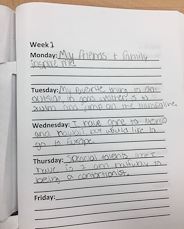 Week 1
Monday: My friends + family
inspire me!
Tuesday: My favorite thing to do
outside in is to
swim and jump on the trampoline.
Wednesday: I have gone to Mexico
and Hawaii, but would like to
go to Europe.
Thursday: Special talents
have is I am halfway to
being a contortionist.
Friday: